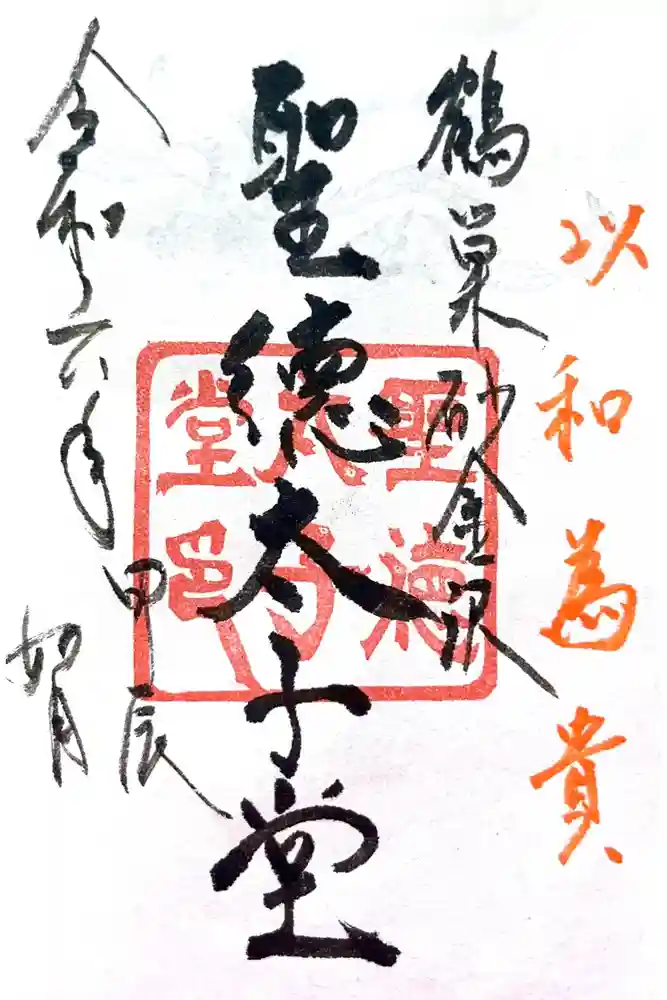 以和為貴
鶴巣砂金沢
聖徳太子堂
聖徳
太子
堂邑
令和六年甲辰
如月